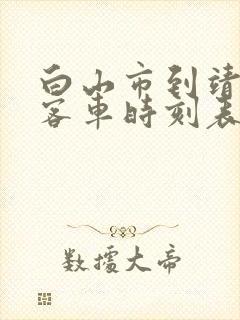 白山市到靖
客車時刻表
數據大帝